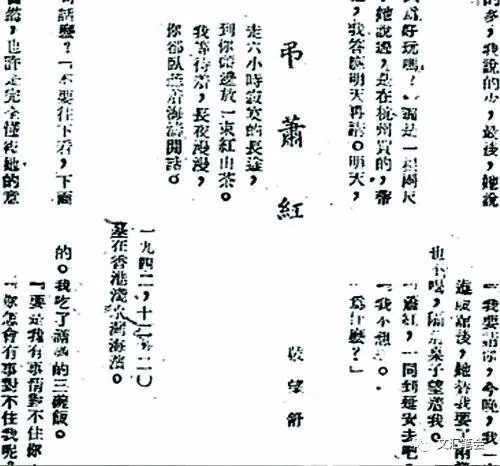 的多，我說的少，最後，她說
爲好玩嗎？」是一根兩尺
她說過，是在杭州買的，帶
，我答應明天再講。明天，
「我要請你，今晚，我一
進飯館後，她替我要了兩
也不喝，隔着桌子望着我。
「蕭紅，一同到延安去吧
「我不想去。
「爲什麼？」
弔蕭紅
戴望舒
走六小時寂寞的長途，
到你頭邊放一束紅山茶。
我等待着，長夜漫漫，
你卻臥聽着海濤閒話。
一九四二，十一，二〇
墓在香港淺水灣海濱。
話麼？「不要往下看，下面
，也許是完全懂得她的意
的。我吃了滿滿的三碗飯。
「要是我有事情對不住你
「你怎會有事對不住我呢。
文汇笔会